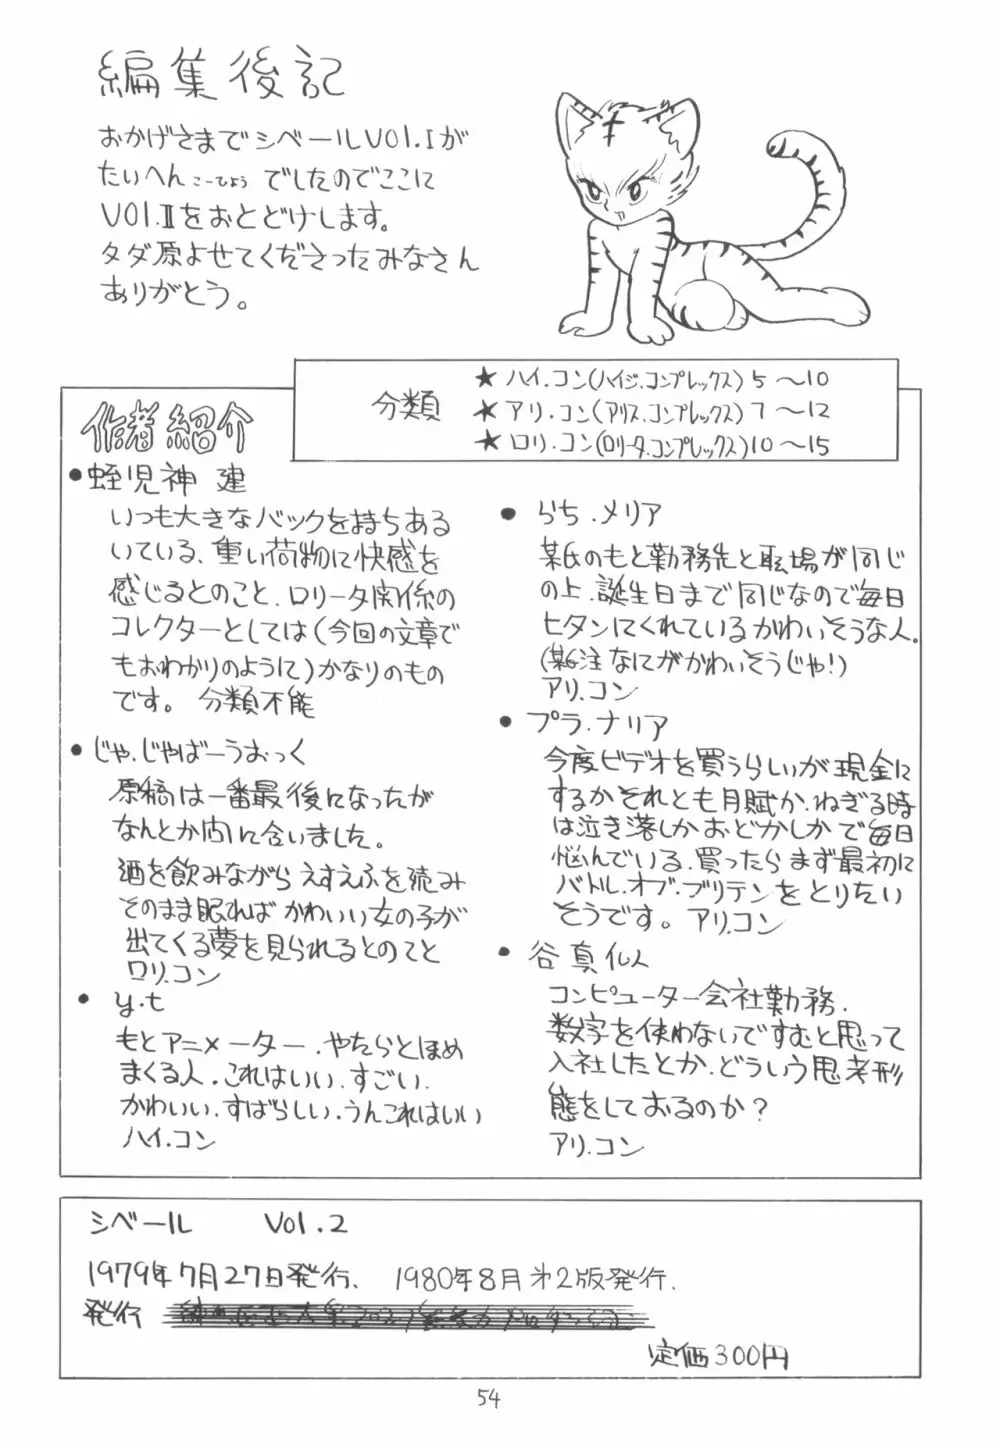 編集後記
おかげさまでシベールVol.Iが
たいへんこーひょうでしたのでここに
Vol.IIをおとどけします。
タダ原よせてくださったみなさん
ありがとう。
分類
★ハイ.コン(ハイジ.コンプレックス)5〜10
★アリ.コン(アリス.コンプレックス)7〜12
★ロリ.コン(ロリータ.コンプレックス)10〜15
作者紹介
●蛭児神 建
いつも大きなバックを持ちある
いている、重い荷物に快感を
感じるとのこと、ロリータ関係の
コレクターとしては(今回の文章で
もおわかりのように)かなりのもの
です。 分類不能
●じゃ.じゃばーうおっく
原稿は一番最後になったが
なんとか間に合いました。
酒を飲みながらえすえふを読み
そのまま眠ればかわいい女の子が
出てくる夢を見られるとのこと
ロリ.コン
●y.t
もとアニメーター.やたらとほめ
まくる人.これはいい.すごい.
かわいい.すばらしい.うんこれはいい
ハイ.コン
●らち.メリア
某氏のもと勤務先と職場が同じ
の上、誕生日まで同じなので毎日
ヒタンにくれているかわいそうな人。
(某注なにがかわいそうじゃ!)
アリ.コン
●プラ.ナリア
今度ビデオを買うらしいが現金に
するかそれとも月賦か、ねぎる時
は泣き落しかおどかしかで毎日
悩んでいる、買ったらまず最初に
バトル.オブ.ブリテンをとりたい
そうです。アリ.コン
●谷 真仏
コンピューター会社勤務.
数字を使わないですむと思って
入社したとか.どういう思考形
態をしておるのか?
アリ.コン
シベール Vol.2
1979年7月27日発行、1980年8月才2版発行.
発行
定価300円
54